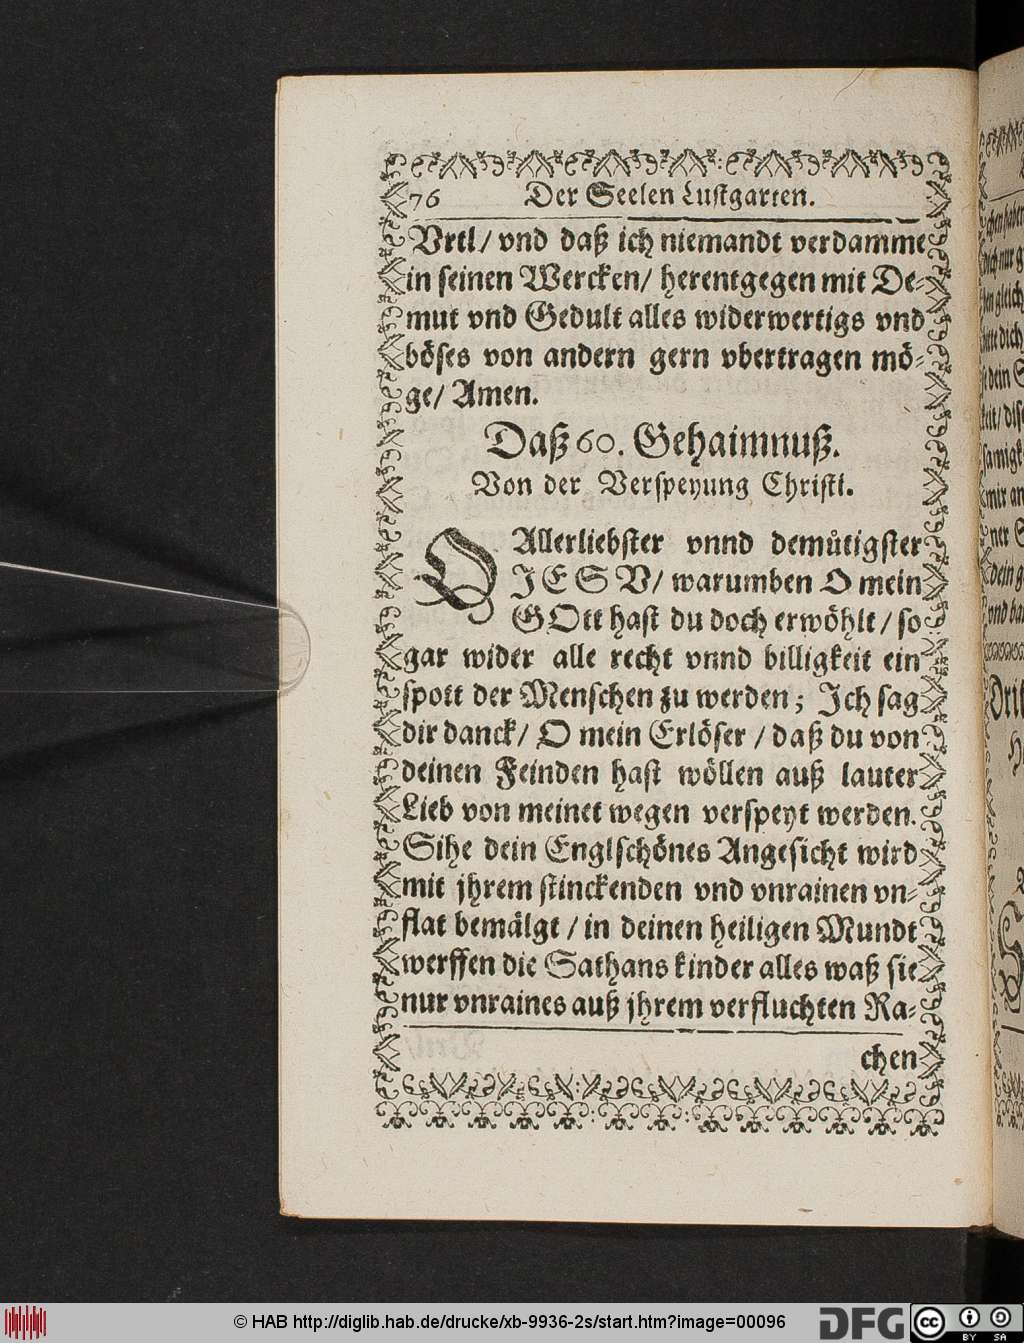 76 Der Seelen Lustgarten.
Vrtl/ vnd daß ich niemandt verdamme
in seinen Wercken/ herentgegen mit De-
mut vnd Gedult alles widerwertigs vnd
böses von andern gern vbertragen mö-
ge/ Amen.
Daß 60. Gehaimnuß.
Von der Verspeyung Christi.
O Allerliebster vnnd demůtigster
JESV/ warumben O mein
GOtt hast du doch erwöhlt/ so
gar wider alle recht vnnd billigkeit ein
spott der Menschen zu werden; Ich sag
dir danck/ O mein Erlöser/ daß du von
deinen Feinden hast wöllen auß lauter
Lieb von meinet wegen verspeyt werden.
Sihe dein Englschönes Angesicht wird
mit jhrem stinckenden vnd vnrainen vn-
flat bemälgt/ in deinen heiligen Mundt
werffen die Sathans kinder alles waß sie
nur vnraines auß jhrem verfluchten Ra-
chen
© HAB http://diglib.hab.de/drucke/xb-9936-2s/start.htm?image=00096
DFG
cc
BY SA